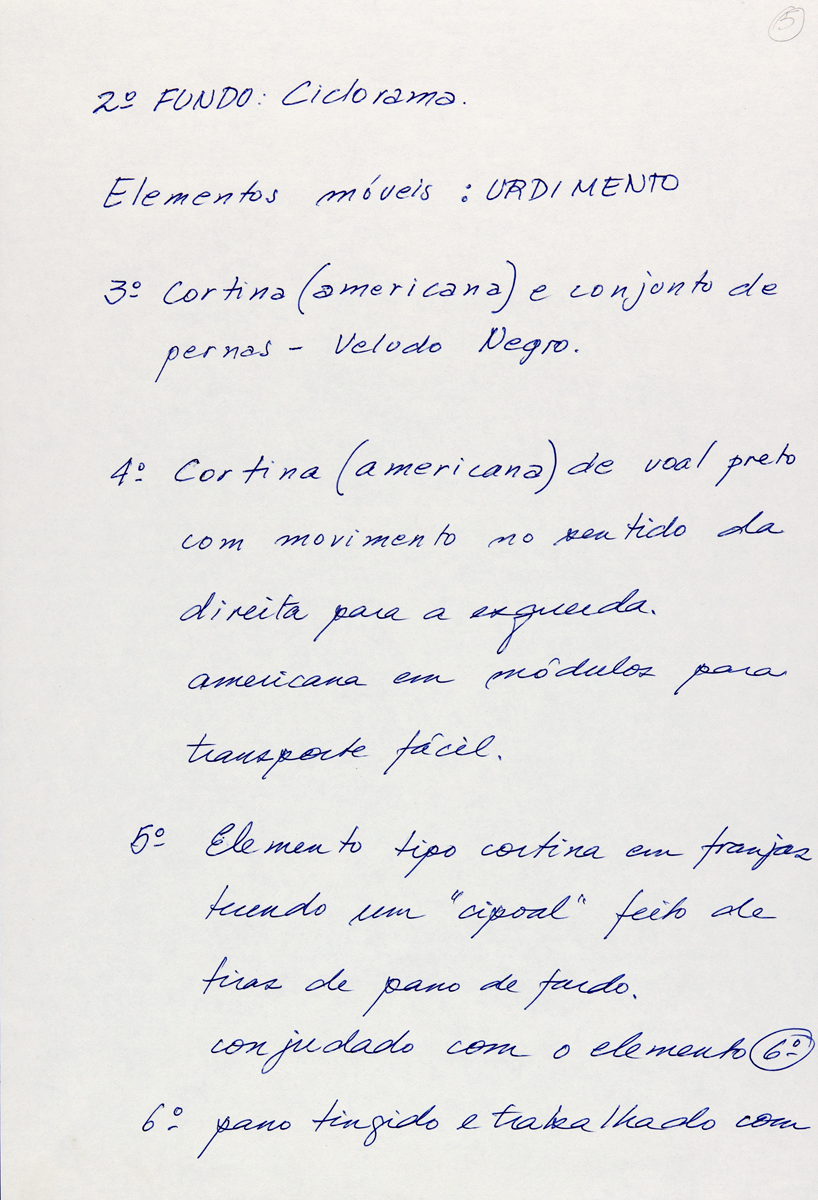 5
2º FUNDO: Ciclorama.
Elementos móveis : URDIMENTO
3º Cortina (americana) e conjunto de
pernas - Veludo Negro.
4º Cortina (americana) de voal preto
com movimento no sentido da
direita para a esquerda.
americana em módulos para
transporte fácil.
5º Elemento tipo cortina em franjas
tuendo um "cipoal" feito de
tiras de pano de fardo.
conjudado com o elemento 6º
6º pano tingido e trabalhado com